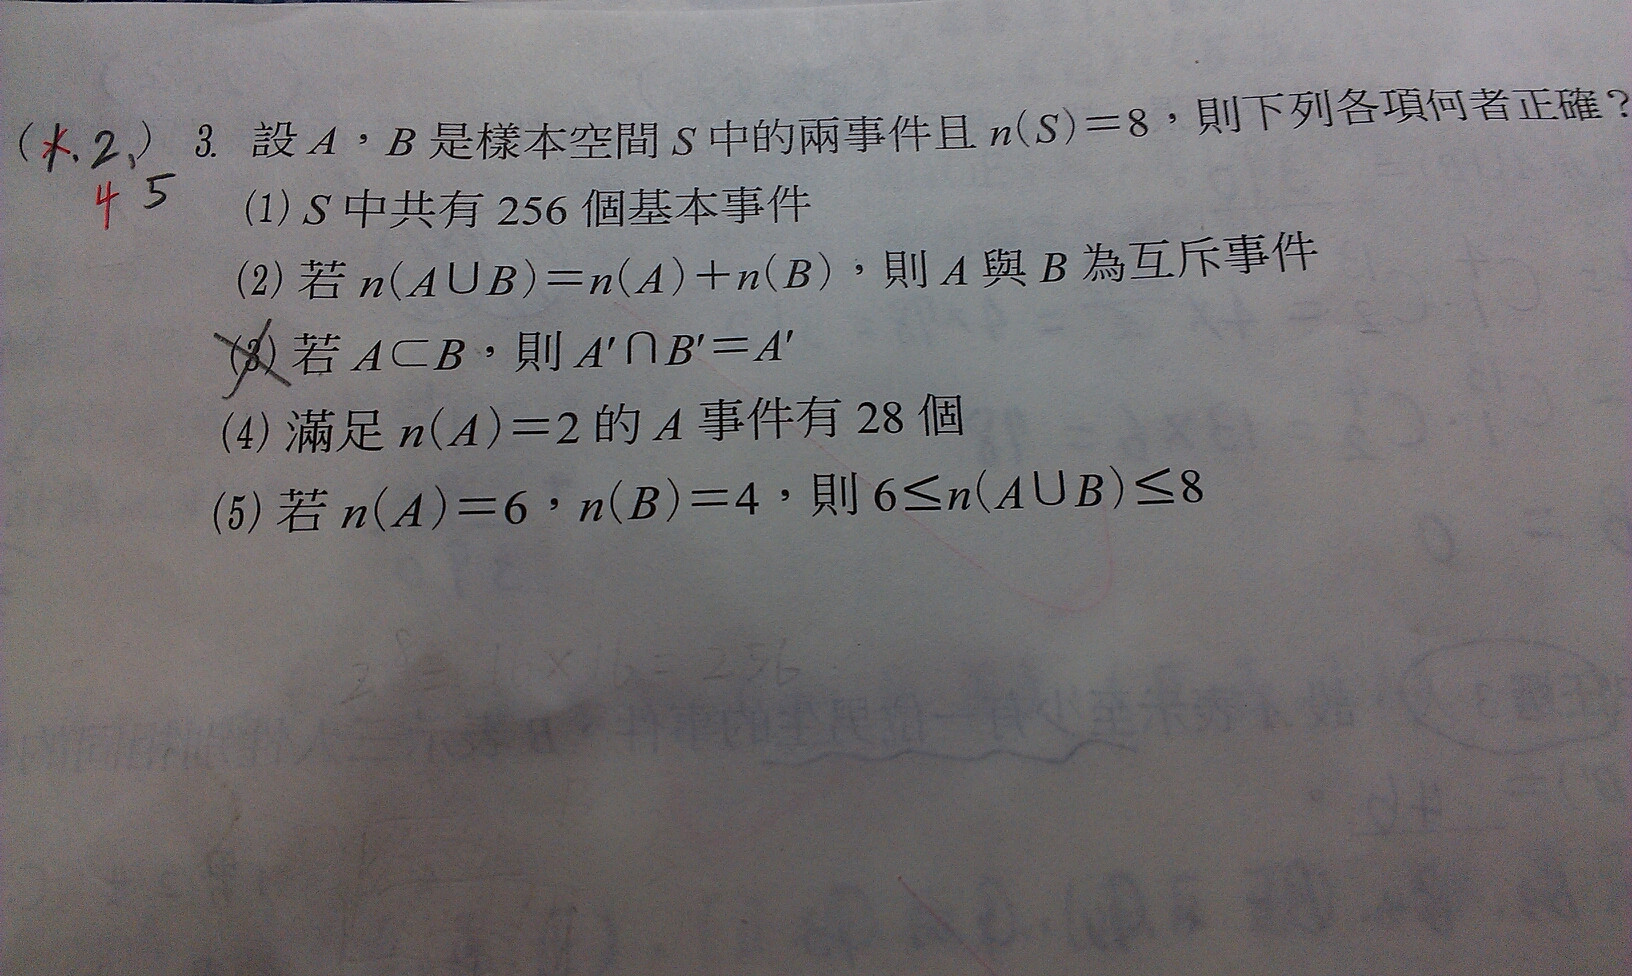 (1.2,) 3. 設 A,B 是樣本空間 S 中的兩事件且 n(S)=8,則下列各項何者正確?
4 5
(1) S 中共有 256 個基本事件
(2) 若 n(A∪B)=n(A)+n(B),則 A 與 B 為互斥事件
(3) 若 A⊂B,則 A′∩B′=A′
(4) 滿足 n(A)=2 的 A 事件有 28 個
(5) 若 n(A)=6,n(B)=4,則 6≤n(A∪B)≤8